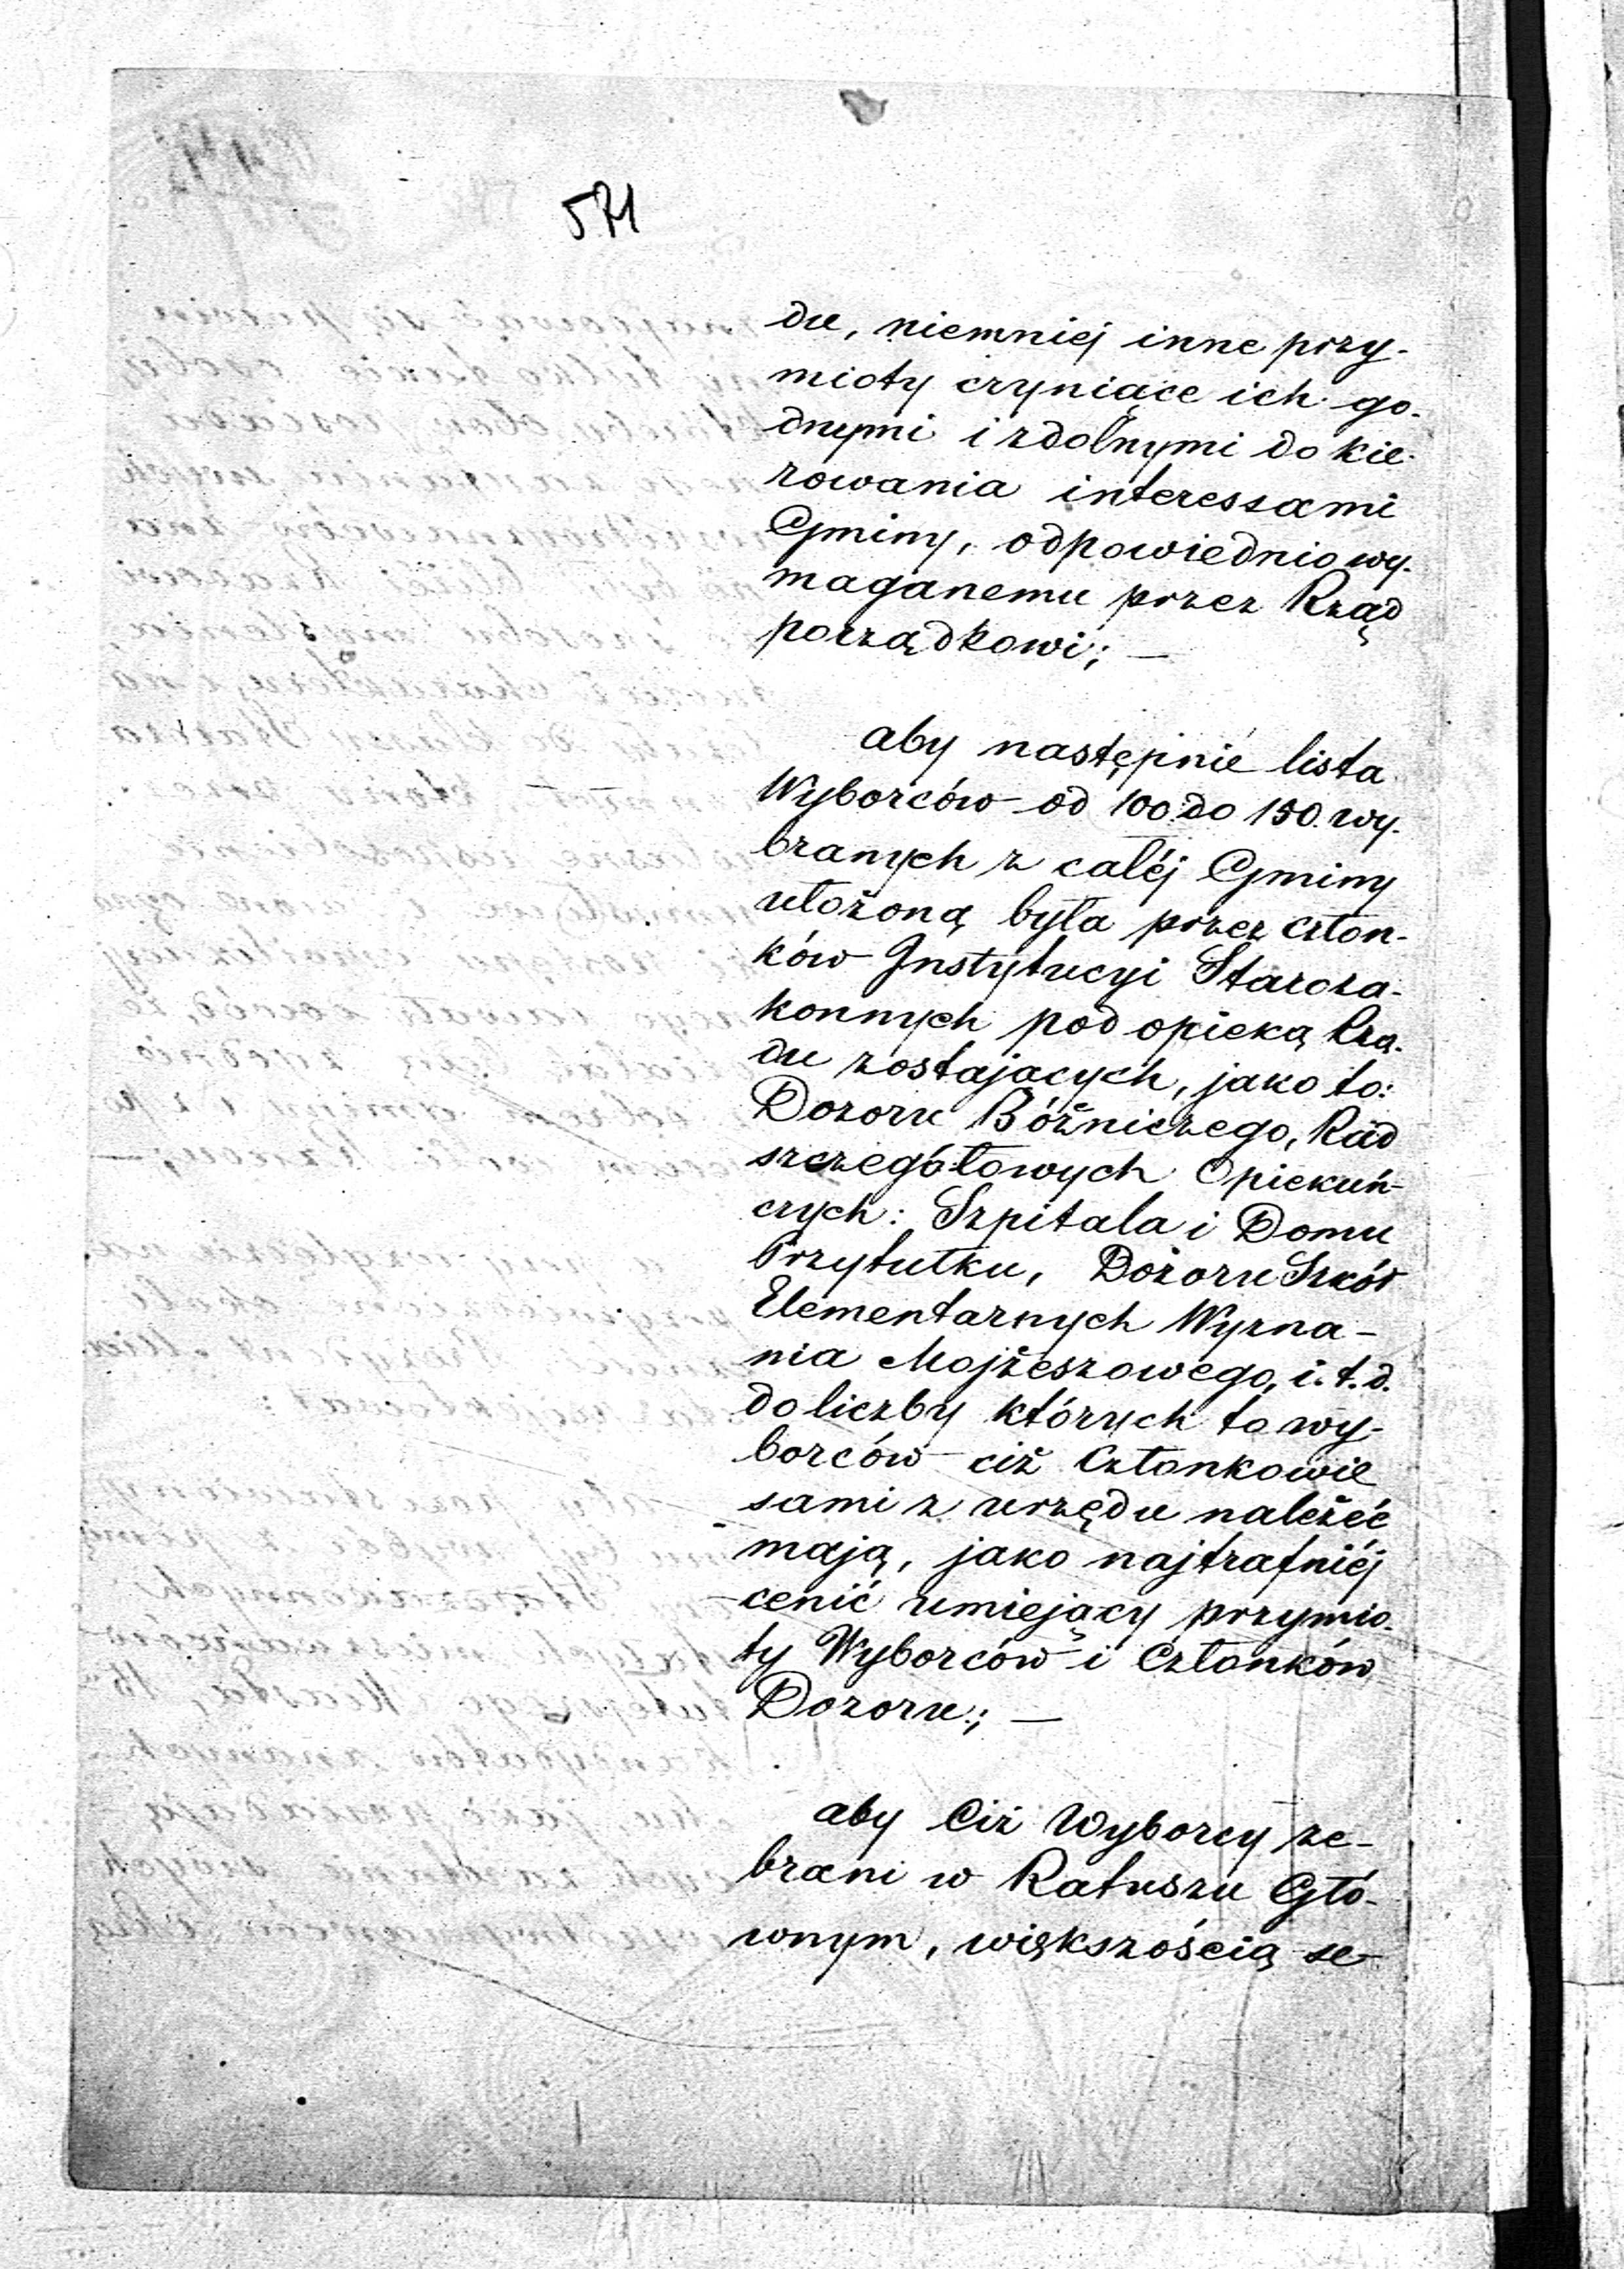 571
du, niemniej inne przy-
mioty czyniące ich go-
dnymi i zdolnymi do kie-
rowania interessami
Gminy, odpowiednio wy-
maganemu przez Rząd
porządkowi; —
aby następnie lista
Wyborców od 100 do 150. wy-
branych z całéj Gminy
ułożoną była przez człon-
ków Instytucyi Staroza-
konnych pod opieką Rzą-
du zostających, jako to:
Dozoru Bóżniczego, Rad
szczegółowych Opiekuń-
czych: Szpitala i Domu
Przytułku, Dozoru Szkół
Elementarnych Wyzna-
nia Mojżeszowego, i. t. d.
do liczby których to wy-
borców ciż Członkowie
sami z urzędu należéć
mają, jako najtrafniéj
cenić umiejący przymio-
ty Wyborców i Członków
Dozoru; —
aby Ciż Wyborcy ze-
brani w Ratuszu Głó-
wnym, większością se-